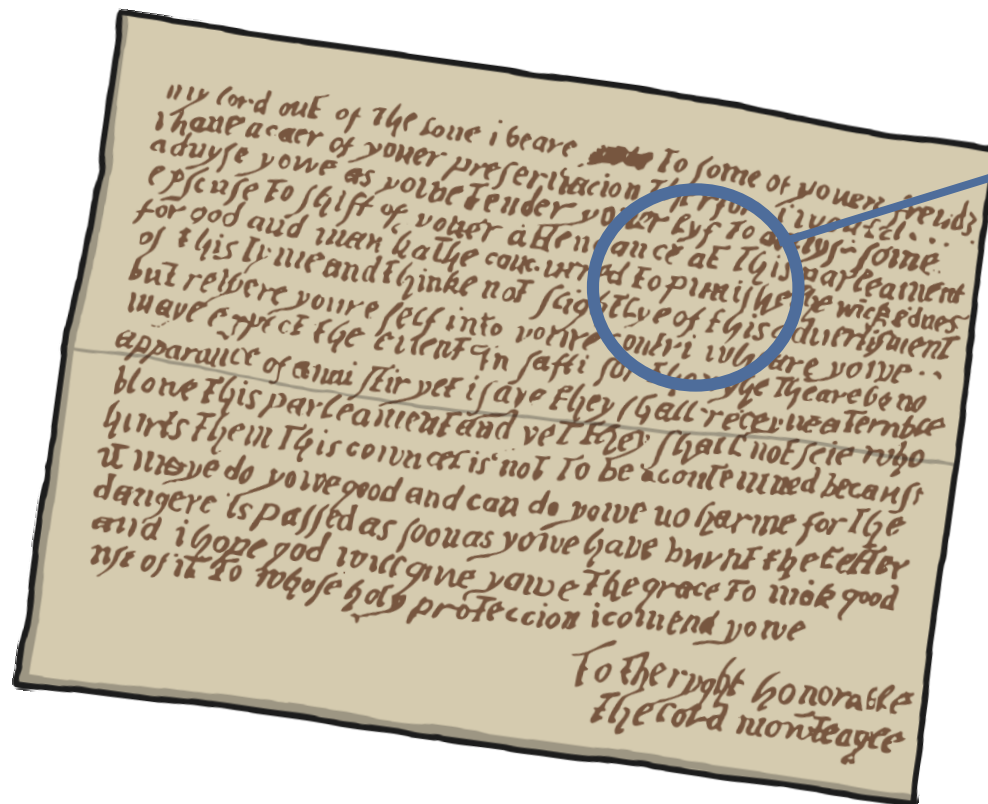 my lord out of the loue i beare To some of youer frends
i haue a caer of youer preseruacion Therfor i would
aduyse yowe as yowe Tender youer lyf To deuys some
epscuse To shift of youer attendance at This parleament
for god and man hathe concurred to punishe the wickednes
of this Tyme and thinke not slightlye of this aduertisment
but retyere youre self into youre contri wheare yowe
maye expect the euent in safti for thowghe theare be no
apparance of anni stir yet i saye they shall receyue a terrible
blowe this parleament and yet they shall not seie who
hurts them This councel is not To be acontemned because
it maye do yowe good and can do yowe no harme for The
dangere is passed as soon as yowe have burnt the letter
and i hope god will give yowe The grace To mak good
use of it To whose holy proteccion i comend yowe
To the ryght honorable
the lord monteagle